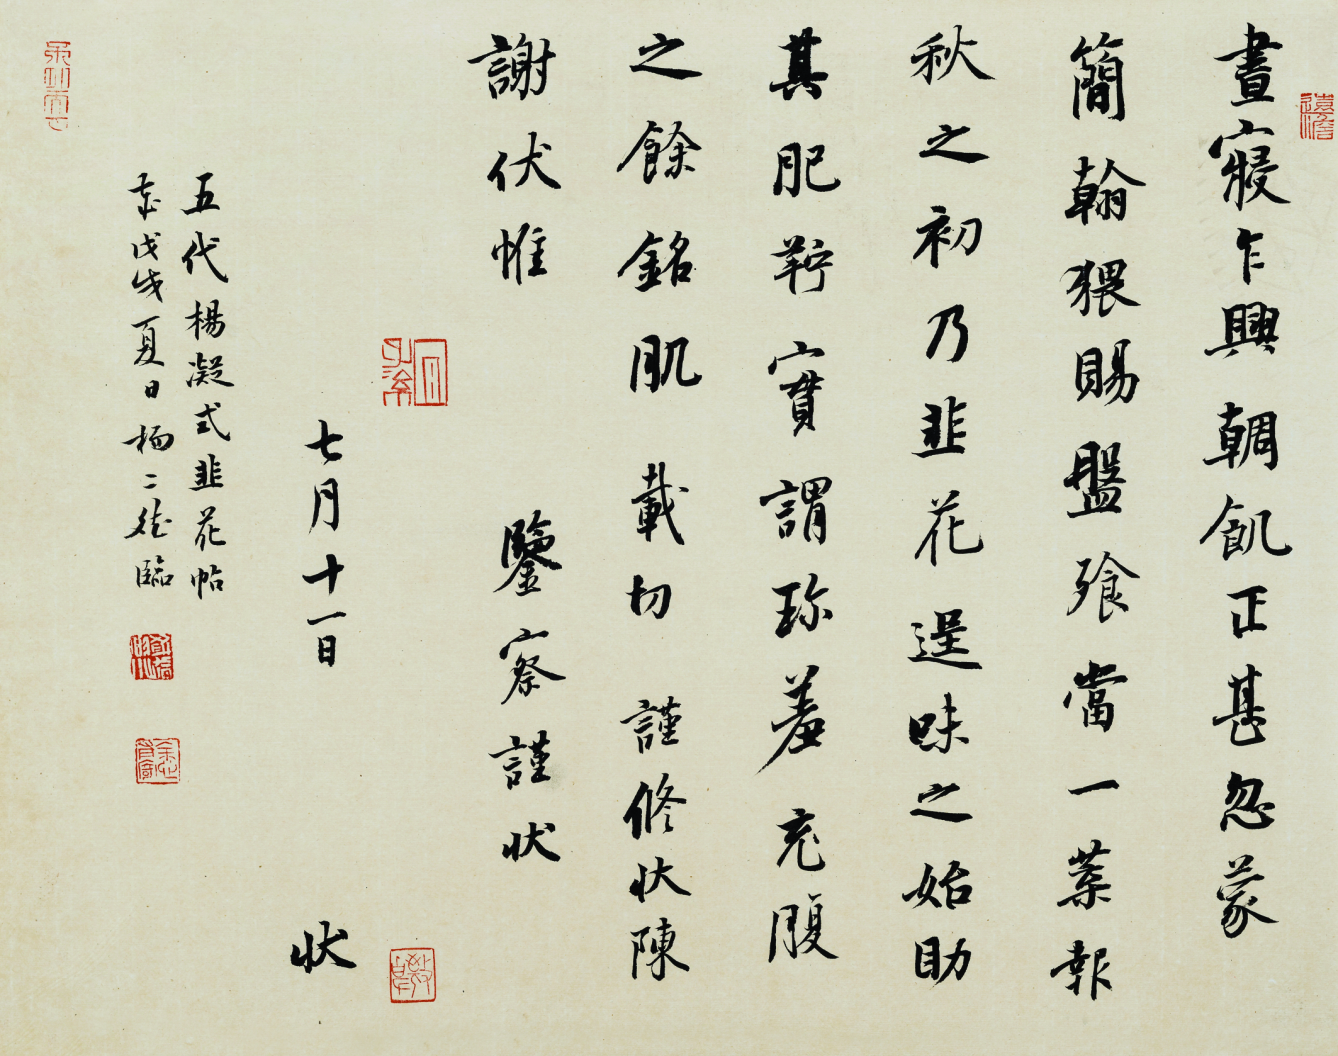 晝寢乍興輖飢正甚忽蒙
簡翰猥賜盤飱當一葉報
秋之初乃韭花逞味之始助
其肥羜實謂珍羞充腹
之餘銘肌載切謹修狀陳
謝伏惟鑒察謹狀
七月十一日狀
五代楊凝式韭花帖
戊戌夏日楊二臨